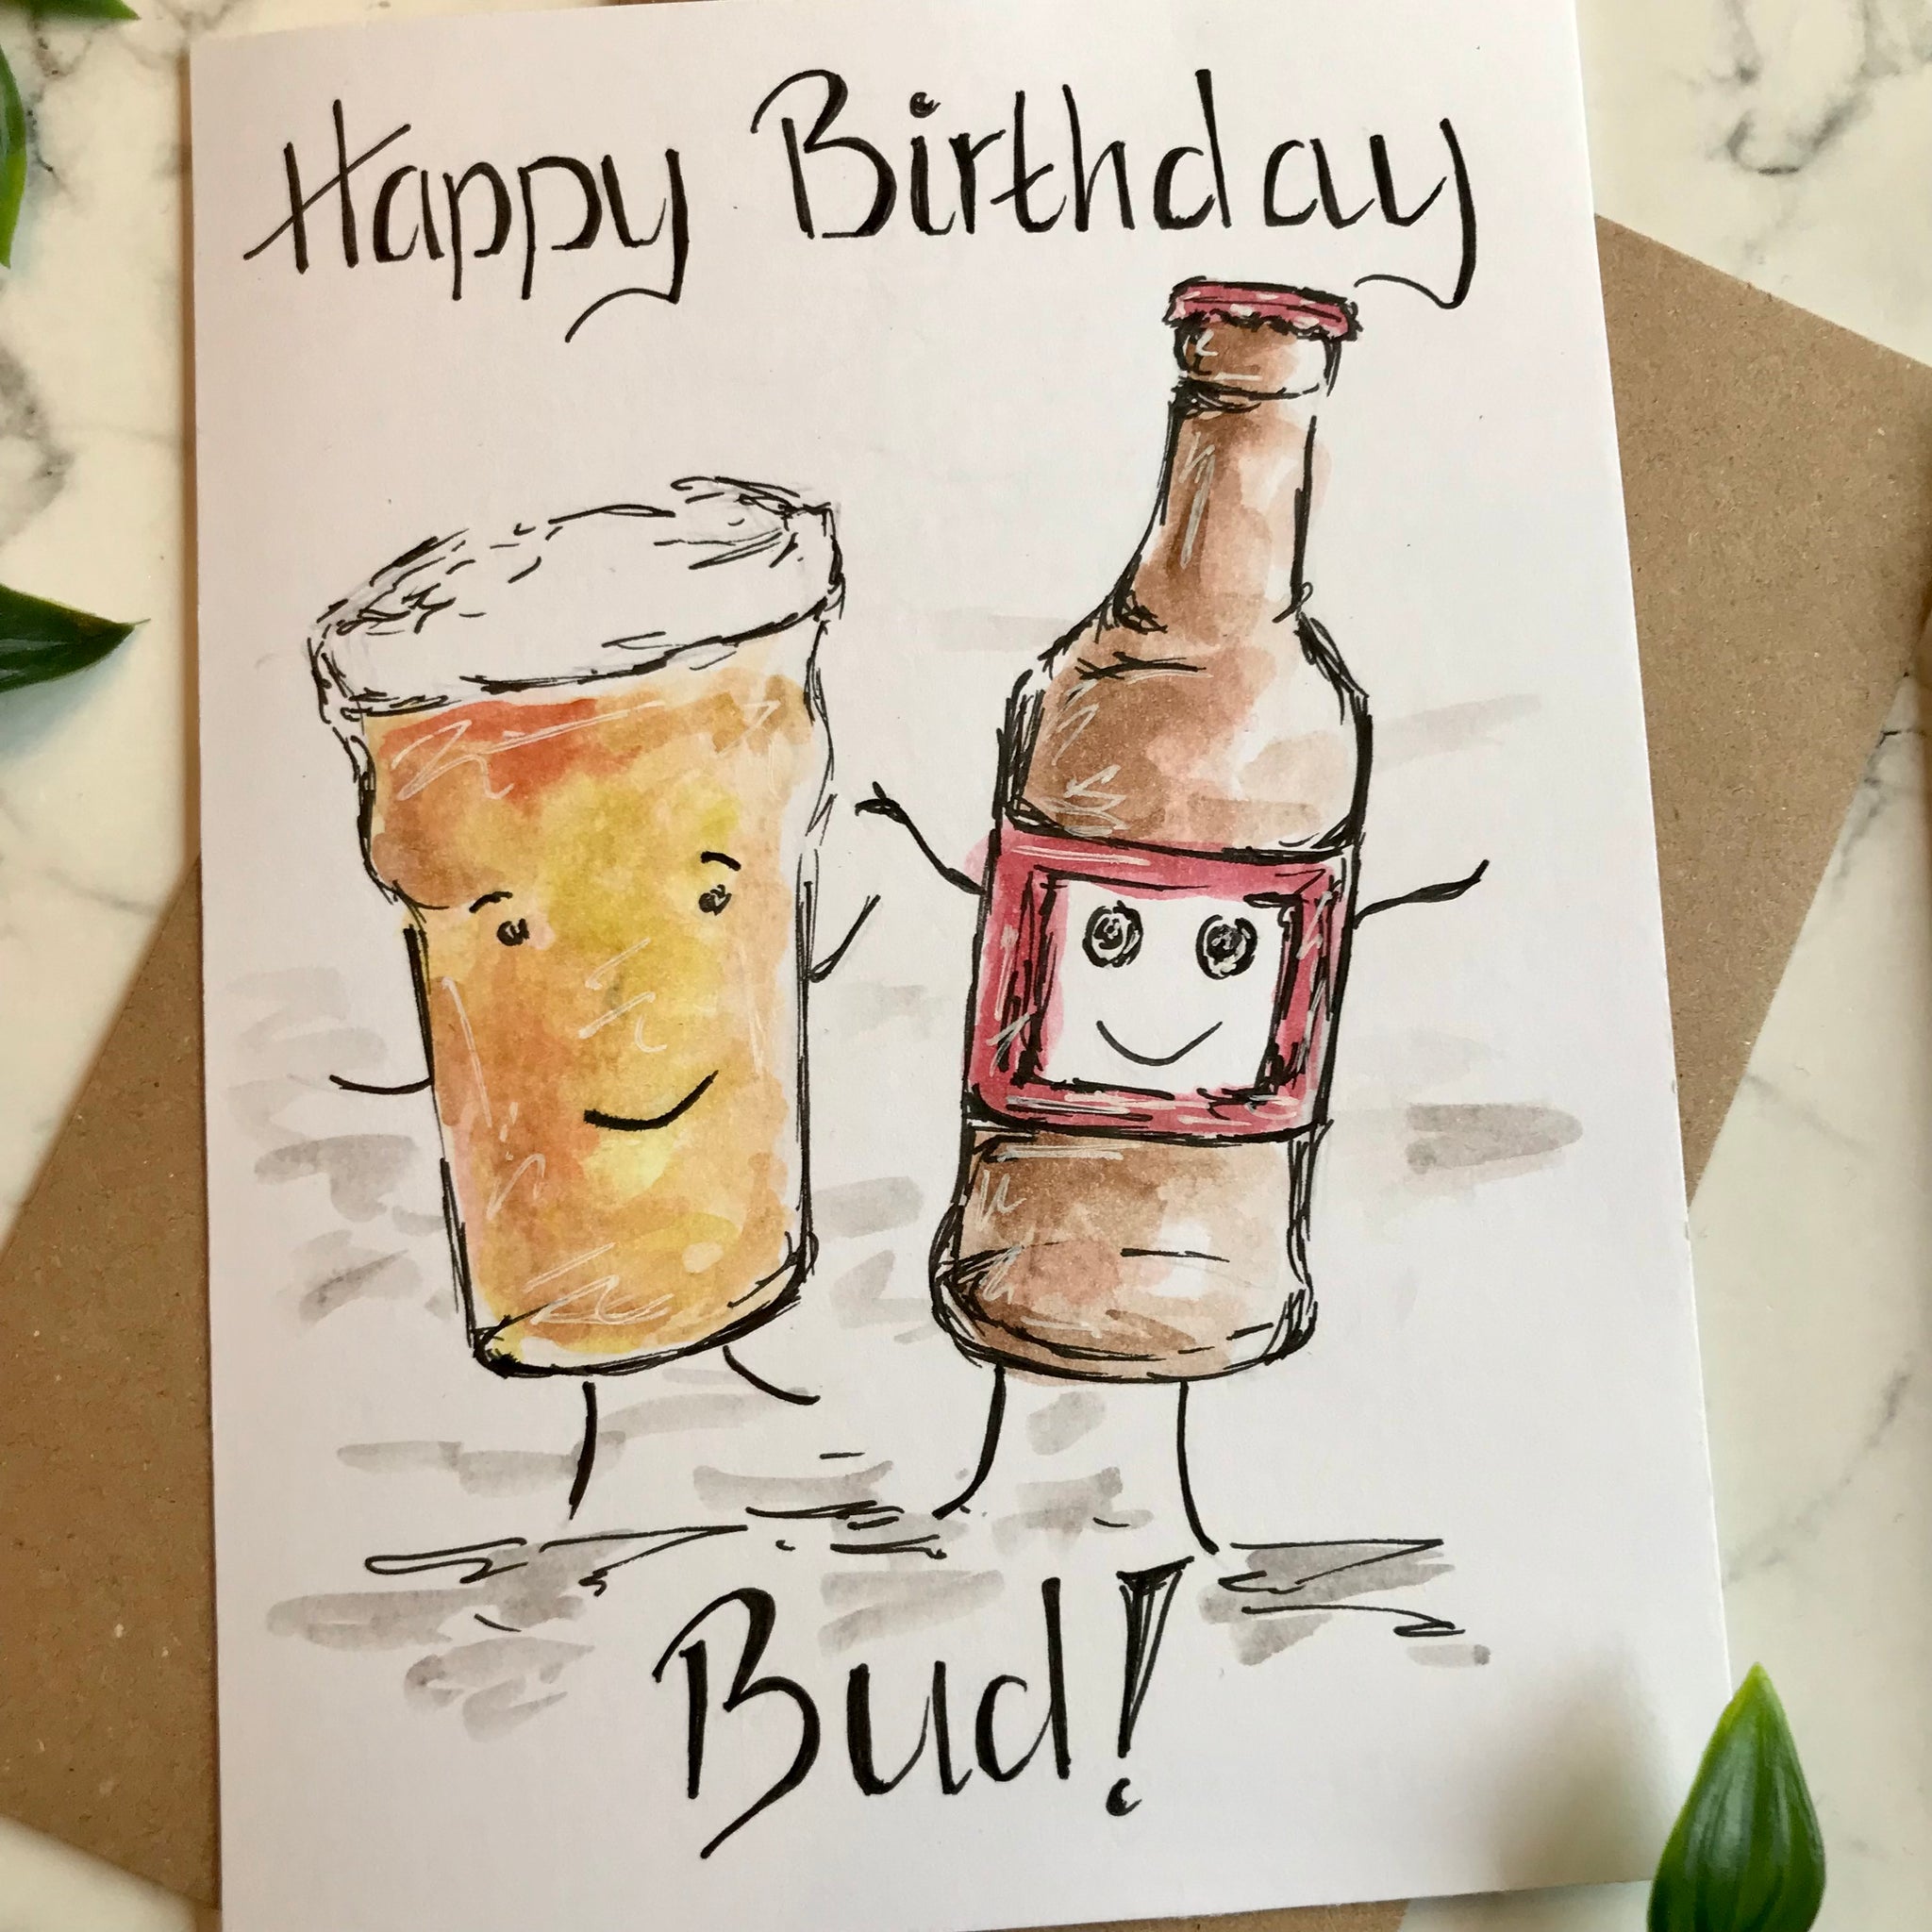 Happy Birthday
Bud!